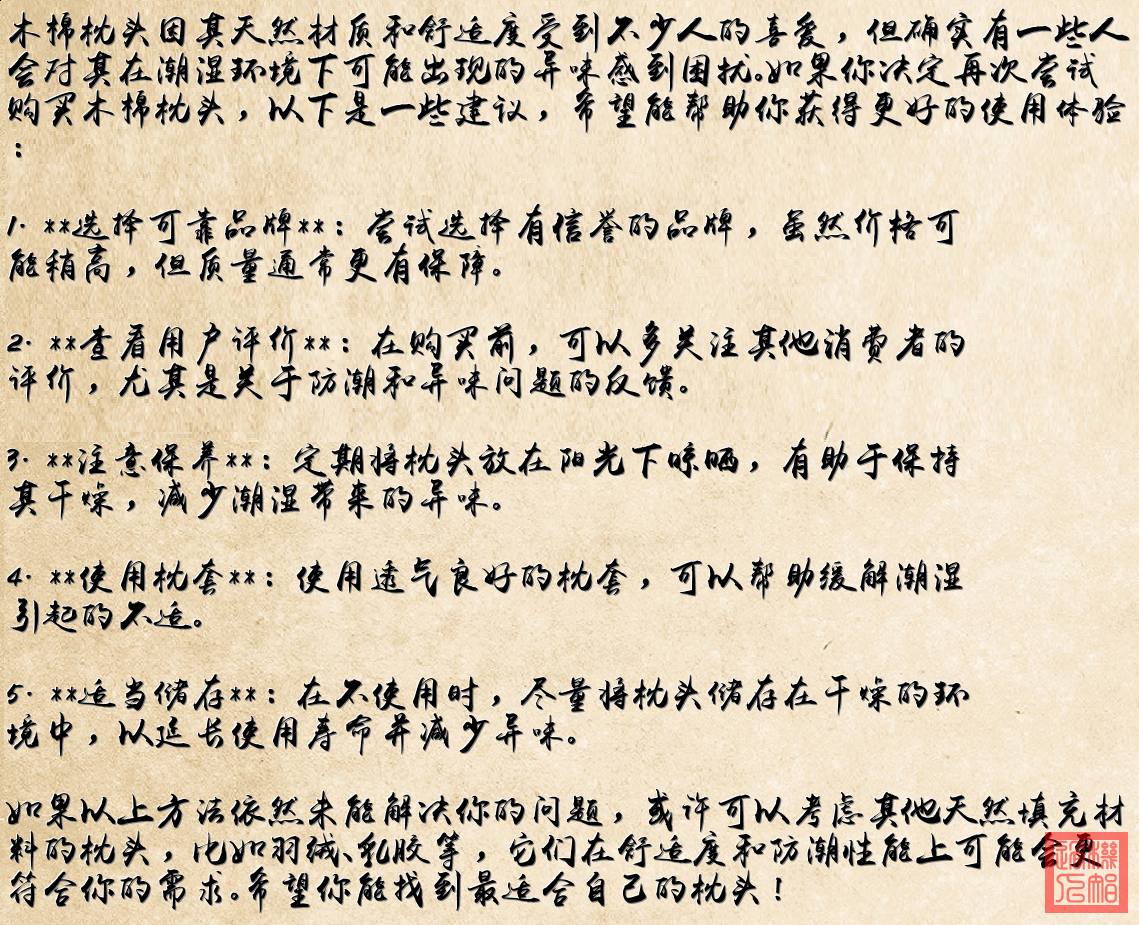 木棉枕头因其天然材质和舒适度受到不少人的喜爱，但确实有一些人
会对其在潮湿环境下可能出现的异味感到困扰。如果你决定再次尝试
购买木棉枕头，以下是一些建议，希望能帮助你获得更好的使用体验
：
1. **选择可靠品牌**：尝试选择有信誉的品牌，虽然价格可
能稍高，但质量通常更有保障。
2. **查看用户评价**：在购买前，可以多关注其他消费者的
评价，尤其是关于防潮和异味问题的反馈。
3. **注意保养**：定期将枕头放在阳光下晾晒，有助于保持
其干燥，减少潮湿带来的异味。
4. **使用枕套**：使用透气良好的枕套，可以帮助缓解潮湿
引起的不适。
5. **适当储存**：在不使用时，尽量将枕头储存在干燥的环
境中，以延长使用寿命并减少异味。
如果以上方法依然未能解决你的问题，或许可以考虑其他天然填充材
料的枕头，比如羽绒、乳胶等，它们在舒适度和防潮性能上可能会更
符合你的需求。希望你能找到最适合自己的枕头！